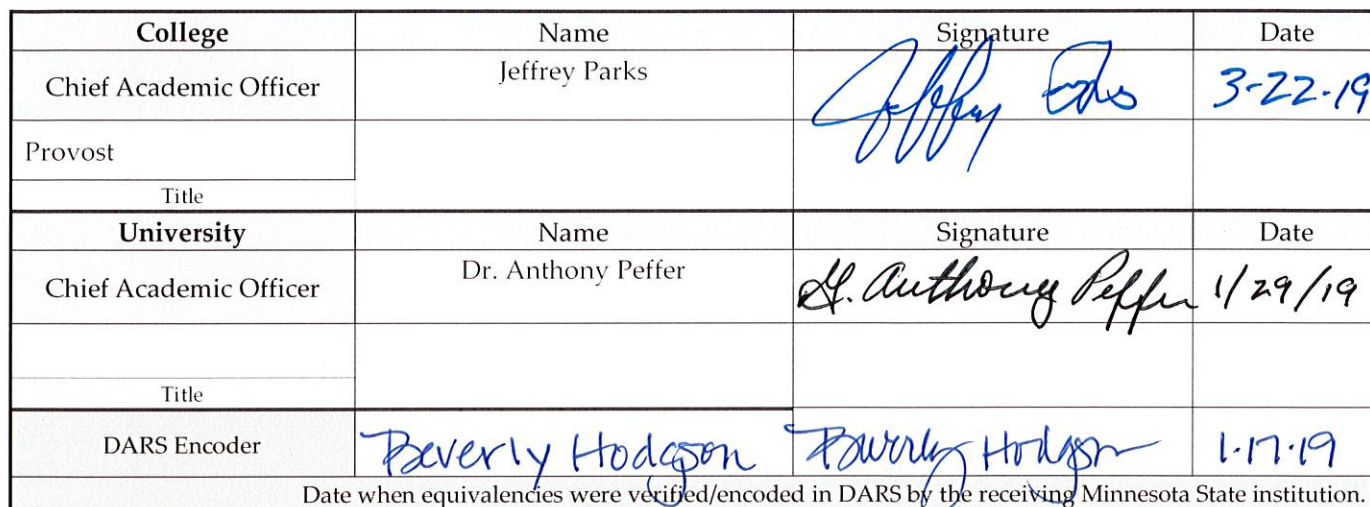 College Name Signature Date
Chief Academic Officer Jeffrey Parks Jeffrey 3-22-19
Provost
Title
University Name Signature Date
Chief Academic Officer Dr. Anthony Peffer H. Anthony Peffer 1/29/19
Title
DARS Encoder Beverly Hodgson Beverly Hodgson 1.17.19
Date when equivalencies were verified/encoded in DARS by the receiving Minnesota State institution.